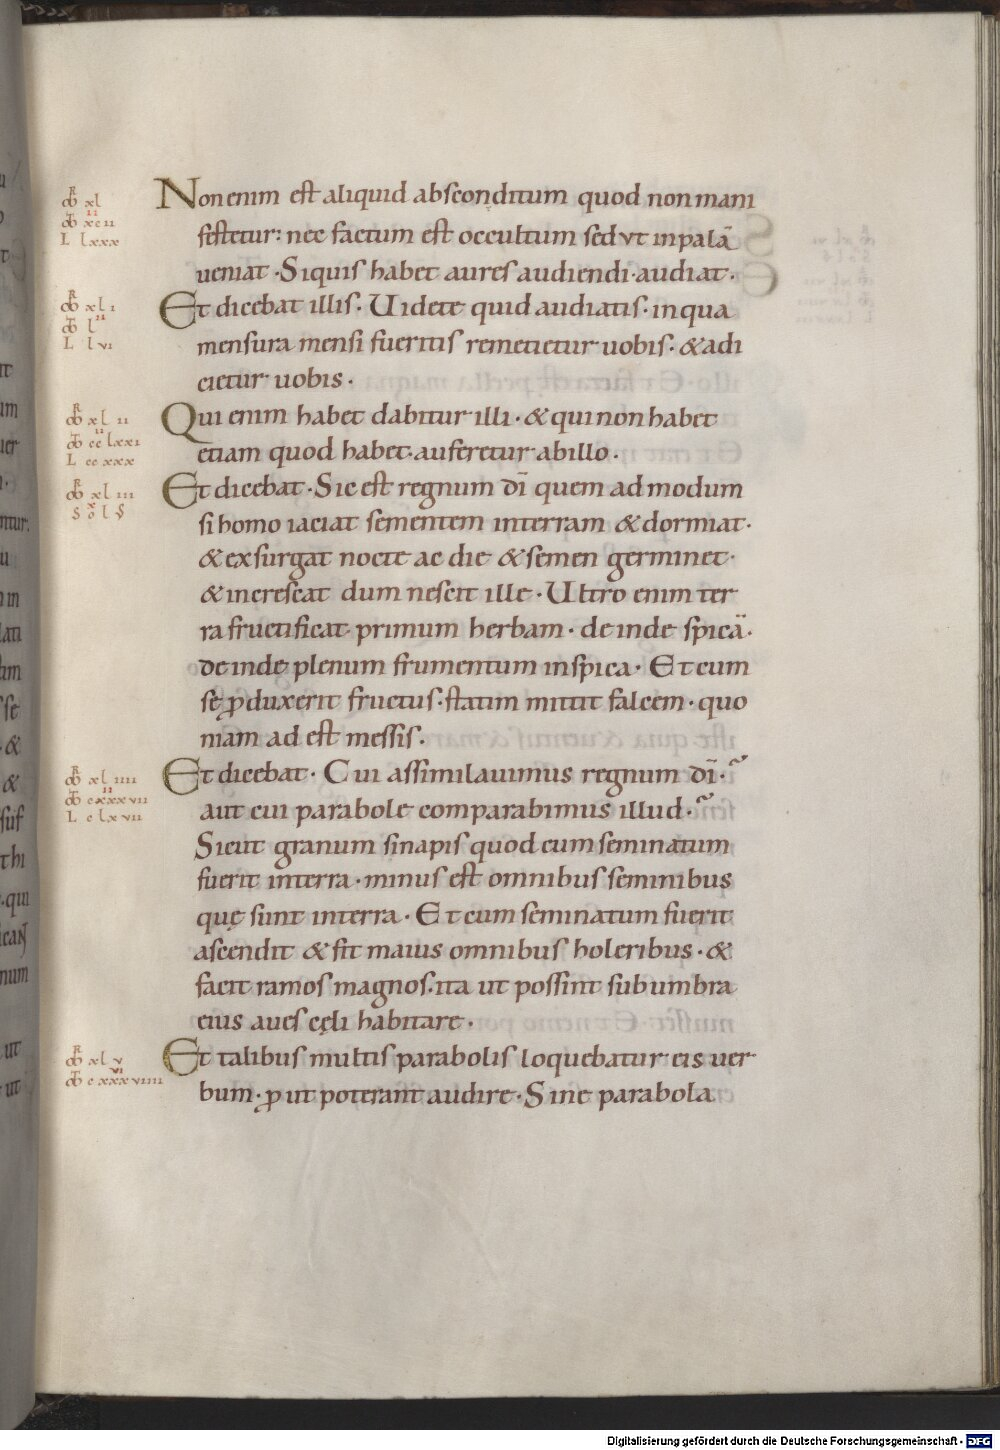 Non enim est aliquid absconditum quod non mani
festetur: nec factum est occultum sed ut in palā
ueniat · Siquis habet aures audiendi · audiat ·
Et dicebat illis · Uidete quid audiatis · in qua
mensura mensi fueritis remetietur uobis · & adi
cietur uobis ·
Qui enim habet dabitur illi · & qui non habet
etiam quod habet · auferetur ab illo ·
Et dicebat · Sic est regnum dī quem ad modum
si homo iaciat sementem in terram & dormiat ·
& exsurgat nocte ac die & semen germinet ·
& increscat dum nescit ille · Ultro enim ter
ra fructificat primum herbam · deinde spicā ·
deinde plenum frumentum in spica · Et cum
se ꝓduxerit fructus · statim mittit falcem · quo
niam ad est messis ·
Et dicebat · Cui assimilauimus regnum dī ·
aut cui parabole comparabimus illud ·
Sicut granum sinapis quod cum seminatum
fuerit in terra · minus est omnibus seminibus
quę sunt in terra · Et cum seminatum fuerit
ascendit & fit maius omnibus holeribus · &
facit ramos magnos · ita ut possint sub umbra
eius aues cęli habitare ·
Et talibus multis parabolis loquebatur eis uer
bum · ꝓ ut poterant audire · Sine parabola
xl
xcii
L lxxx
xl i
L lvi
xl ii
cclxxi
L ccxxx
xl iii
xl iiii
cxxxvii
L clxvii
xl v
cxxxviiii
Digitalisierung gefördert durch die Deutsche Forschungsgemeinschaft - DFG